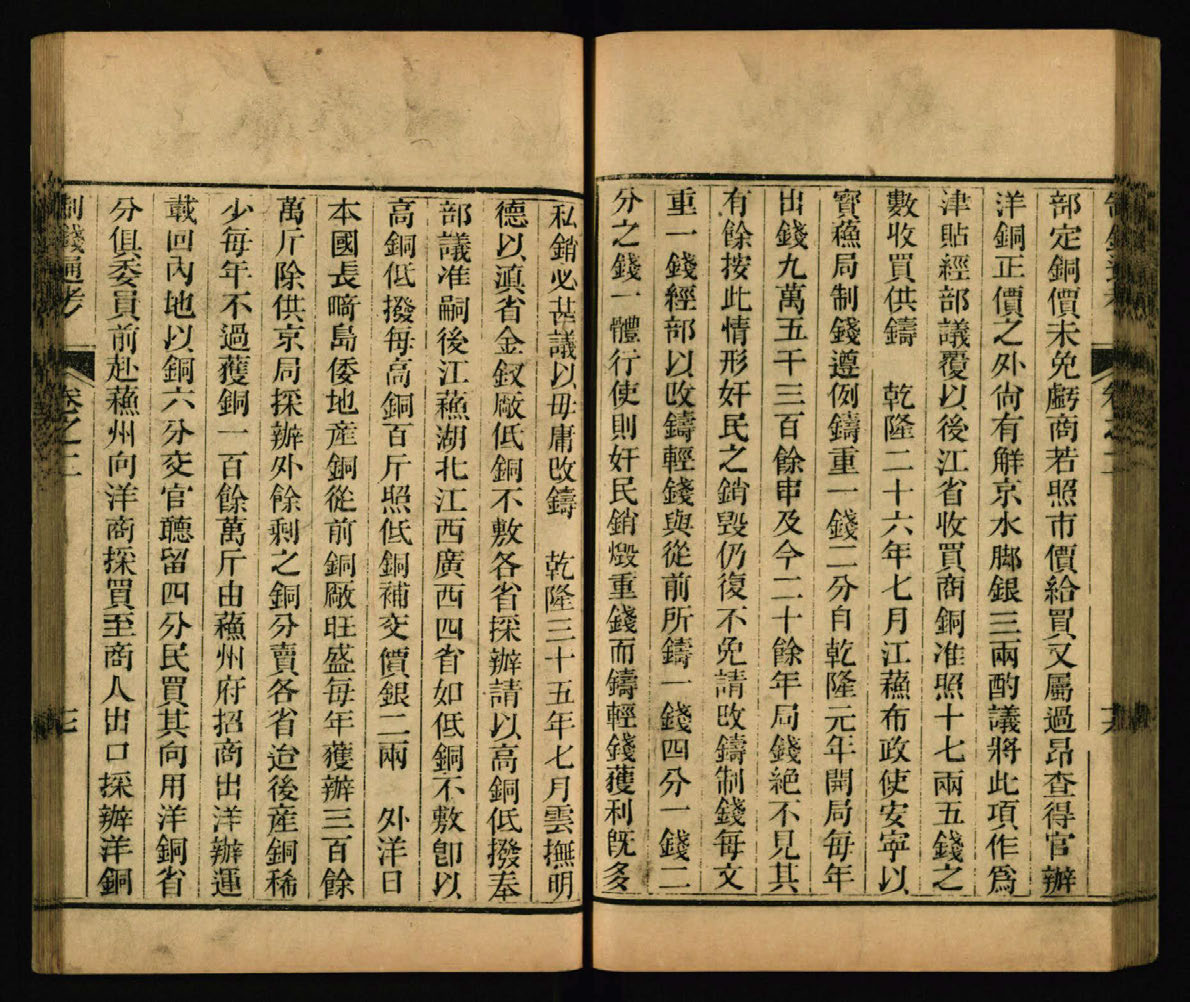 制錢通考 卷之二
部定銅價未免虧商若照市價給買又屬過昂查得官辦
洋銅正價之外尙有解京水脚銀三兩酌議將此項作爲
津貼經部議覆以後江省收買商銅准照十七兩五錢之
數收買供鑄 乾隆二十六年七月江蘓布政使安寧以
寳蘓局制錢遵例鑄重一錢二分自乾隆元年開局每年
出錢九萬五千三百餘串及今二十餘年局錢絶不見其
有餘按此情形奸民之銷毀仍復不免請改鑄制錢每文
重一錢經部以改鑄輕錢與從前所鑄一錢四分一錢二
分之錢一體行使則奸民銷燬重錢而鑄輕錢獲利旣多
私銷必甚議以毋庸改鑄 乾隆三十五年七月雲撫明
德以滇省金釵厰低銅不敷各省採辦請以高銅低撥奉
部議准嗣後江蘓湖北江西廣西四省如低銅不敷卽以
高銅低撥每高銅百斤照低銅補交價銀二兩 外洋日
本國長﨑島倭地産銅從前銅厰旺盛每年獲辦三百餘
萬斤除供京局採辦外餘剩之銅分賣各省迨後産銅稀
少每年不過獲銅一百餘萬斤由蘓州府招商出洋辦運
載回內地以銅六分交官聽留四分民買其向用洋銅省
分俱委員前赴蘓州向洋商採買至商人出口採辦洋銅
制錢通考 卷之二